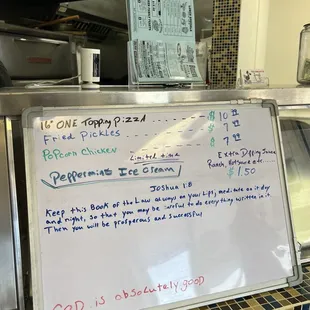 16" ONE Topping Pizza ---- $ 10 99
Fried Pickles ---- $ 7 99
Popcorn Chicken ---- $ 7 99
Limited time
Peppermint Ice Cream
Extra Dipping Sauce
Ranch, Hot Sauce etc
$1.50
Joshua 1:8
Keep this Book of the Law always on your lips, meditate on it day
and night, so that you may be careful to do everything written in it.
Then you will be prosperous and successful
GOD is absolutely good